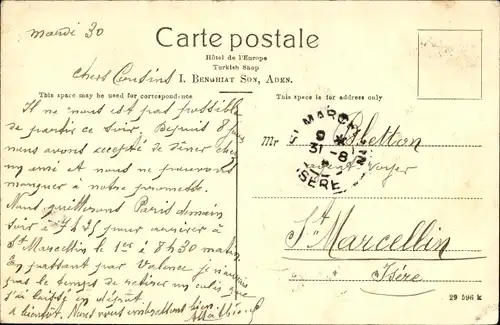 mardi 30
Carte postale
Hôtel de l'Europe
Turkish Shop
I. Benghiat Son, Aden.
chers Cousins
This space may be used for correspondence
This space is for address only
Il ne nous est pas possible
de partir ce soir. Depuis 8 jours
nous avons accepté de dîner chez
un ami et nous ne pouvons
manquer à notre promesse.
Nous quitterons Paris demain
soir à 7h35 pour arriver à
St Marcellin le 1er à 8h30 matin
En passant par Valence je n'aurais
pas le temps de retirer un colis que
j'ai laissé en dépôt
à bientôt. Nous vous embrassons bien
Mr Bletton
agent voyer
St Marcellin
Isère
St MARCELLIN
9
31-8
ISERE
29 596 k